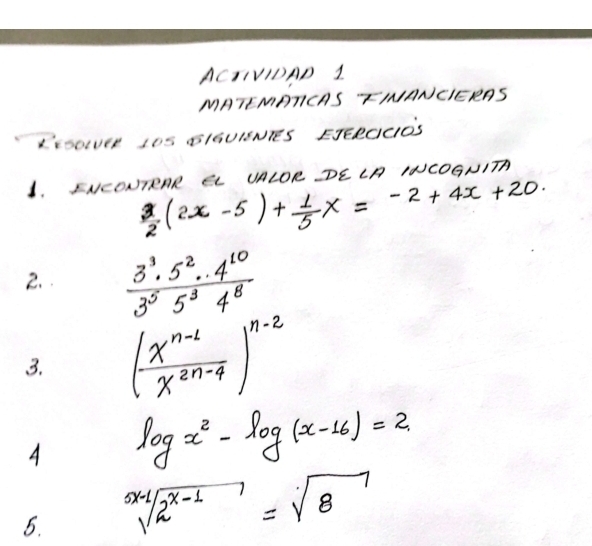 ACTIVIDAD 1
MATEMATICAS FINANCIERAS
RESOLVER LOS SIGUIENTES EJERCICIOS
1. ENCONTRAR EL VALOR DE LA INCOGNITA
3/2 (2x - 5) + 1/5 x = -2 + 4x + 20.
2. (3³ · 5² .. 4¹⁰) / (3⁵ 5³ 4⁸)
3. (xⁿ⁻¹ / x²ⁿ⁻⁴)ⁿ⁻²
4 log x² - log (x-16) = 2.
5. ⁵ˣ⁻¹√(2ˣ⁻¹) = √8